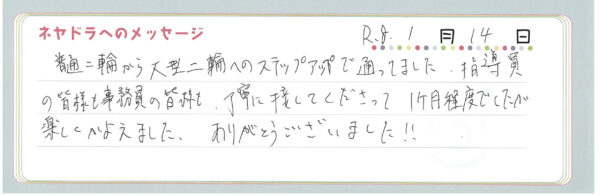 ネヤドラへのメッセージ R.8. 1 月 14 日
普通二輪から大型二輪へのステップアップで通ってました。指導員
の皆様も事務員の皆様も、丁寧に接してくださって 1ヶ月程度でしたが
楽しくかよえました、ありがとうございました!!